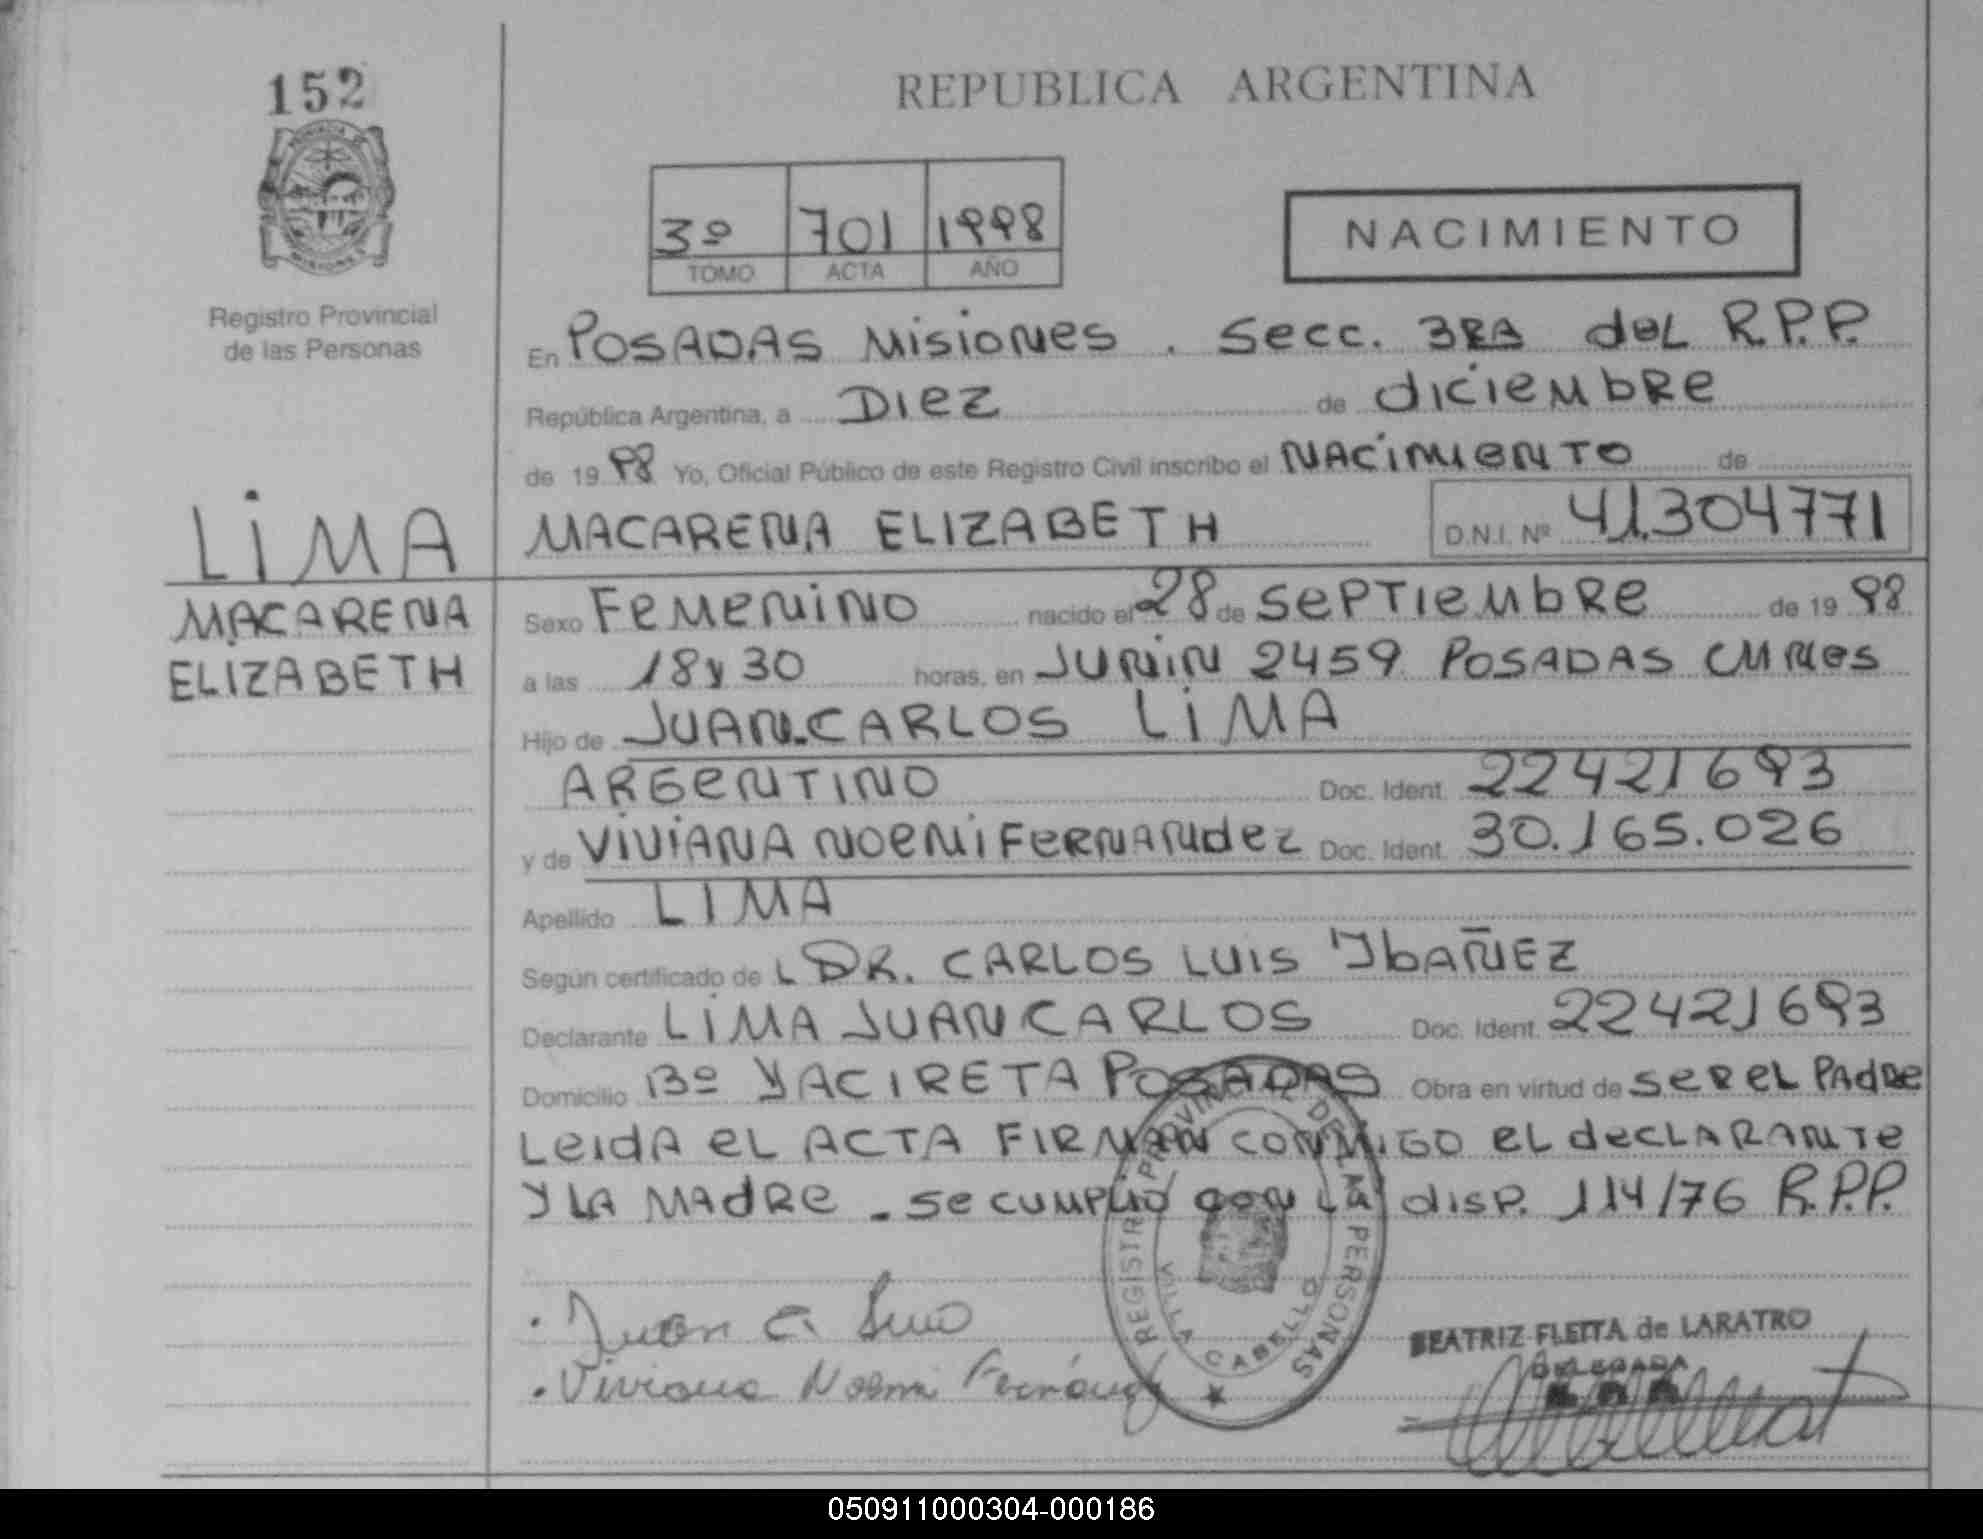 152
REPUBLICA ARGENTINA
3º 701 1998
TOMO ACTA AÑO
NACIMIENTO
PROVINCIA DE
MISIONES
Registro Provincial
de las Personas
En POSADAS Misiones. Secc. 3RA del R.P.P.
República Argentina, a Diez de diciembre
de 19 98 Yo, Oficial Público de este Registro Civil inscribo el NACIMIENTO de
LIMA MACARENA ELIZABETH D.N.I. Nº 41.304771
MACARENA
ELIZABETH
Sexo Femenino nacido el 28 de septiembre de 19 98
a las 18 y 30 horas, en JUNIN 2459 POSADAS
Hijo de JUAN CARLOS LIMA
ARGENTINO Doc. Ident. 22421693
y de VIVIANA NOEMI FERNANdeZ Doc. Ident. 30.165.026
Apellido LIMA
Según certificado de L DR. CARLOS LUIS IbAÑEZ
Declarante LIMA JUAN CARLOS Doc. Ident. 22421693
Domicilio Bº YACIRETA POSADAS Obra en virtud de SER EL PAdRe
LeidA eL ACTA FIRMAN CONMIGO eL decLARANTe
y LA MAdRe - se cumplió con LA disp. 114/76 R.P.P.
REGISTRO PROVINCIAL DE LAS PERSONAS
VILLA CABELLO
Juan C. Lima
Viviana Noemi Fernández
BEATRIZ FLEITA de LARATRO
DELEGADA
050911000304-000186